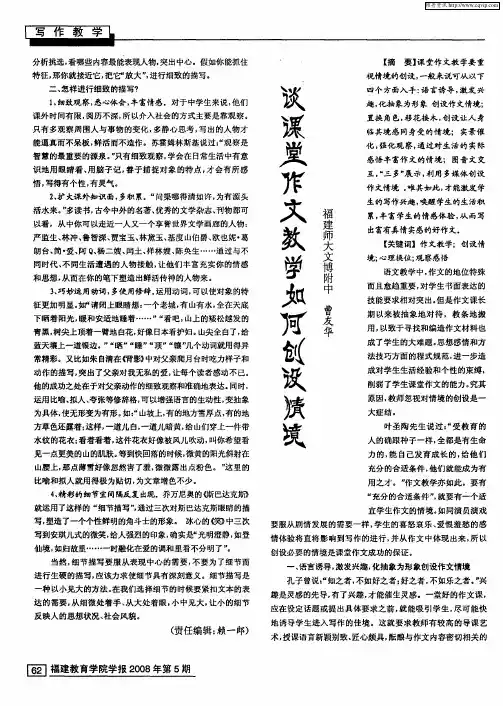 维普资讯 http://www.cqvip.com
写作教学
分析挑选,看哪些内容最能表现人物,突出中心。假如你能抓住
特征,那你就接近它,把它“放大”,进行细致的描写。
二、怎样进行细致的描写?
1.细致观察,悉心体会,丰富情感。对于中学生来说,他们
课外时间有限,阅历不深,所以介入社会的方式主要是靠观察。
只有多观察周围人与事物的变化,多静心思考,写出的人物才
能逼真而不呆板,鲜活而不造作。苏霍姆林斯基说过:“观察是
智慧的最重要的源泉。”只有细致观察,学会在日常生活中有意
识地用眼睛看、用脑子记,善于捕捉对象的特点,才会有所感
悟,写得有个性,有灵气。
2.扩大课外知识面,多积累。“问渠哪得清如许,为有源头
活水来。”多读书,古今中外的名著、优秀的文学杂志、刊物都可
以看,从中你可以走近一人又一个享誉世界文学画廊的人物:
严监生、林冲、鲁智深、贾宝玉、林黛玉、基度山伯爵、欧也妮·葛
朗台、简·爱、阿Q、杨二嫂、闰土、祥林嫂、陈奂生……通过与不
同时代、不同生活遭遇的人物接触,让他们丰富充实你的情感
和思想,从而在你的笔下塑造出鲜活传神的人物来。
3.巧妙运用动词,多使用修辞。运用动词,可以使对象的特
征更加明显。如“请闭上眼睛想:一个老城,有山有水,全在天底
下晒着阳光,暖和安适地睡着……”“看吧,山上的矮松越发的
青黑,树尖上顶着一髻地白花,好像日本看护妇。山尖全白了,给
蓝天镶上一道银边。”“晒”“睡”“顶”“镶”几个动词就用得异
常精彩。又比如朱自清在《背影》中对父亲爬月台时吃力样子和
动作的描写,突出了父亲对我无私的爱,让每个读者感动不已。
他的成功之处在于对父亲动作的细致观察和准确地表达。同时,
运用比喻、拟人、夸张等修辞格,可以增强语言的生动性,变抽象
为具体,使无形变为有形。如:“山坡上,有的地方雪厚点,有的地
方草色还露着;这样,一道儿白,一道儿暗黄,给山们穿上一件带
水纹的花衣;看着看着,这件花衣好像被风儿吹动,叫你希望看
见一点更美的山的肌肤。等到快回落的时候,微黄的阳光斜射在
山腰上,那点薄雪好像忽然害了羞,微微露出点粉色。”这里的
比喻和拟人就用得极为贴切,为文章增色不少。
4.精彩的细节宜间隔反复出现。乔万尼奥的《斯巴达克斯》
就运用了这样的“细节描写”,通过三次对斯巴达克斯眼睛的描
写,塑造了一个个性鲜明的角斗士的形象。 冰心的《笑》中三次
写到安琪儿式的微笑,给人强烈的印象,确实是“光明澄静,如登
仙境,如归故里……一时融化在爱的调和里看不分明了”。
当然,细节描写要服从表现中心的需要,不要为了细节而
进行生硬的描写,应该力求使细节具有深刻意义。细节描写是
一种以小见大的方法。在我们选择细节的时候要紧扣文本的表
达的需要,从细微处着手、从大处着眼,小中见大,让小的细节
反映人的思想状况、社会风貌。
(责任编辑:赖一郎)
谈课堂作文教学如何创设情境
福建师大文博附中 曹友华
【摘 要】课堂作文教学要重
视情境的创设。一般来说可从以下
四个方面入手:语言诱导,激发兴
趣,化抽象为形象 创设作文情境;
置换角色,移花接木,创设让人身
临其境感同身受的情境; 实景催
化,强化观察,通过对生活的实际
感悟丰富作文的情境; 图音文交
互,“三多”展示,利用多媒体创设
作文情境 。唯其如此,才能激发学
生的写作兴趣,唤醒学生的生活积
累,丰富学生的情感体验,从而写
出富有真情实感的好作文。
【关键词】作文教学; 创设情
境;心理换位;观察感悟
语文教学中,作文的地位特殊
而且愈趋重要,对学生书面表达的
技能要求相对突出。但是作文课长
期以来被抽象地对待,教条地搬
用,以致于寻找和编造作文材料也
成了学生的大难题。思想感情和方
法技巧方面的程式规范,进一步造
成对学生生活经验和个性的束缚,
削弱了学生课堂作文的能力。究其
原因,教师忽视对情境的创设是一
大症结。
叶圣陶先生说过:“受教育的
人的确跟种子一样,全都是有生命
力的,能自己发育成长的,给他们
充分的合适条件,他们就能成为有
用之才。”作文教学亦如此。要有
“充分的合适条件”,就要有一个适
宜学生作文的情境,如同演员演戏
要服从剧情发展的需要一样,学生的喜怒哀乐、爱恨羞愁的感
情体验将直将影响到写作的进行,并从作文中体现出来,所以
创设必要的情境是课堂作文成功的保证。
一、语言诱导,激发兴趣,化抽象为形象创设作文情境
孔子曾说:“知之者,不如好之者;好之者,不如乐之者。”兴
趣是灵感的先导,有了兴趣,才能催生灵感。一堂好的作文课,
应在设定话题或提出具体要求之前,就能吸引学生,尽可能快
地诱导学生进入写作的佳境。这就要求教师有较高的导课艺
术,授课语言新颖别致、匠心颇具,酝酿与作文内容密切相关的
62 福建教育学院学报 2008 年第 5 期